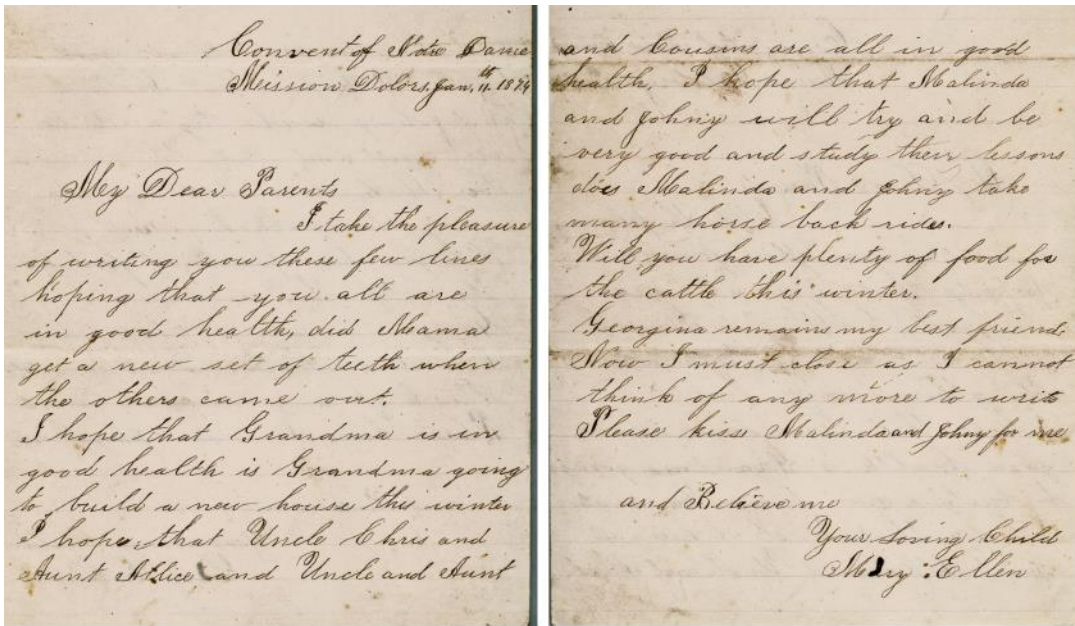 Convent of Notre Dame
Mission Dolors, Jan, 11th 1874
My Dear Parents
I take the pleasure
of writing you these few lines
hoping that you all are
in good health, did Mama
get a new set of teeth when
the others came out.
I hope that Grandma is in
good health is Grandma going
to build a new house this winter
I hope, that Uncle Chris and
Aunt Allice and Uncle and Aunt
and Cousins are all in good
health. I hope that Malinda
and Johny will try and be
very good and study their lessons
does Malinda and Johny take
many horse back rides.
Will you have plenty of food for
the cattle this winter.
Georgina remains my best friend.
Now I must close as I cannot
think of any more to write
Please kiss Malinda and Johny for me
and Believe me
Your Loving Child
Mary Ellen